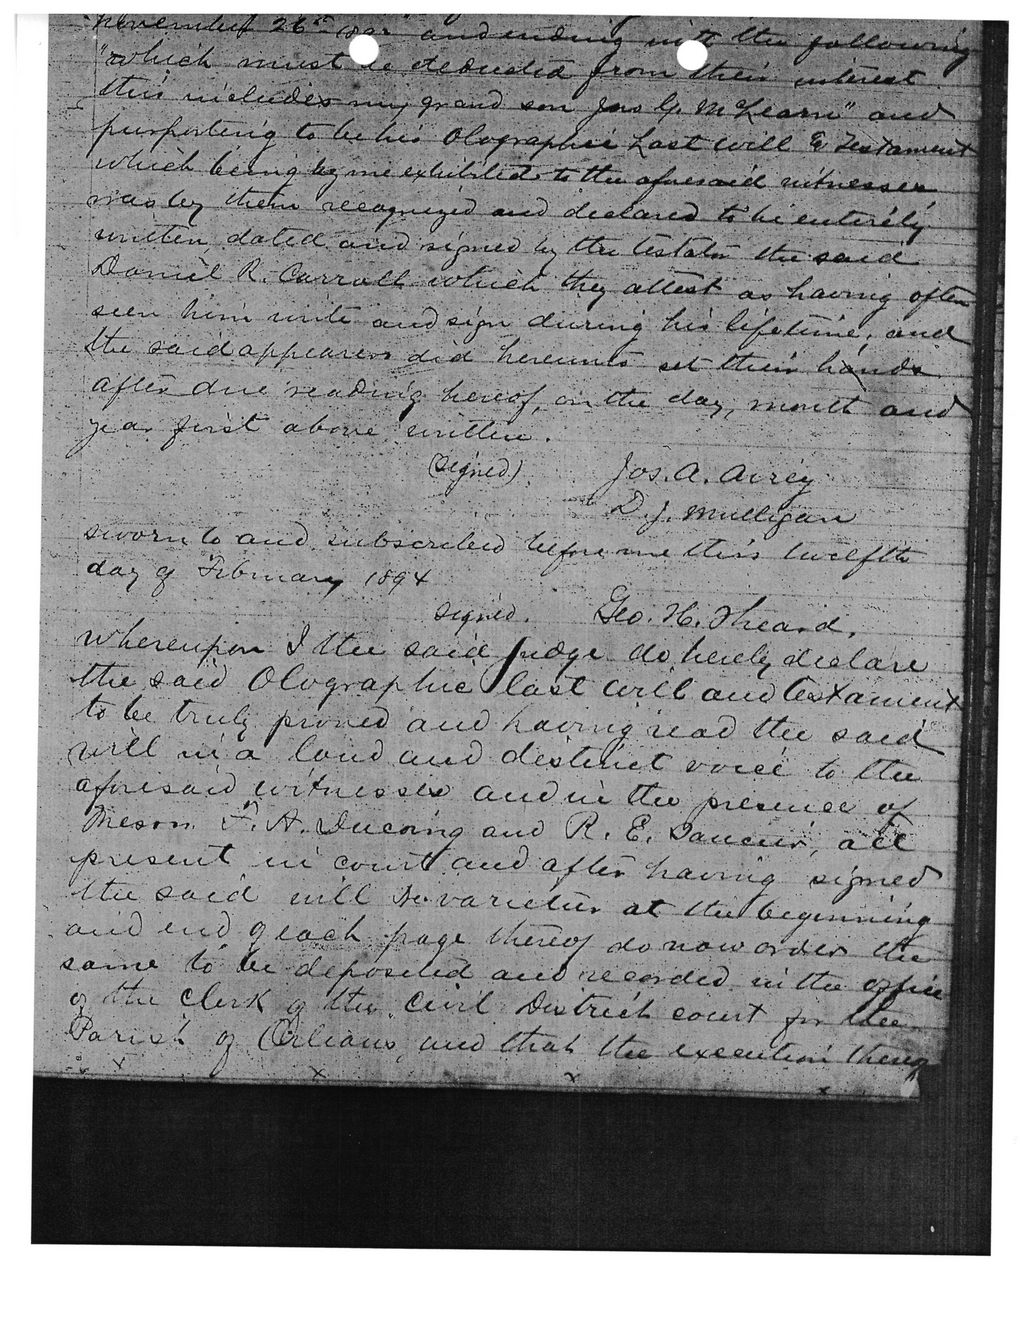 November 26th and ending with the following
"which must be deducted from their interest
this includes my grand son Jno G. McLearn" and
purporting to be his Olographic Last Will & Testament
which being by me exhibited to the aforesaid witnesses
was by them recognized and declared to be entirely
written dated and signed by the testator the said
Daniel R. Carroll which they attest as having often
seen him write and sign during his lifetime, and
the said appearers did hereunto set their hands
after due reading hereof, on the day, month and
year first above written.
(signed) Jos. A. Airey
D. J. Mulligan
sworn to and subscribed before me this twelfth
day of February 1894
signed. Geo. H. Theard.
whereupon I the said Judge do hereby declare
the said Olographic last will and testament
to be truly proved and having read the said
will in a loud and distinct voice to the
aforesaid witnesses and in the presence of
Messrs. F. A. Ducoing and R. E. Saucier, all
present in court and after having signed
the said will Ne varietur at the beginning
and end of each page thereof do now order the
same to be deposited and recorded in the office
of the Clerk of the Civil District court for the
Parish of Orleans, and that the execution thereof